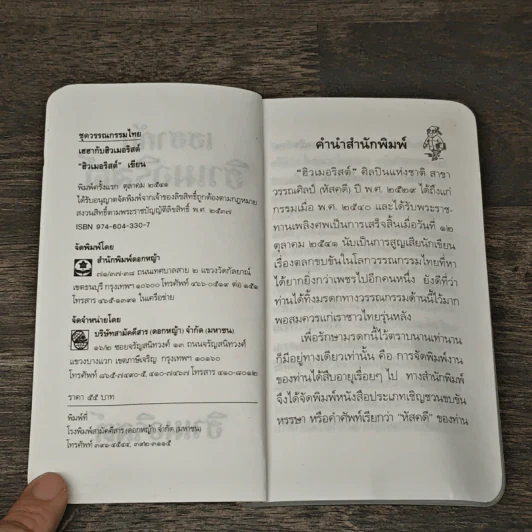 ชุดวรรณกรรมไทย
เฮฮากับฮิวเมอริสต์
"ฮิวเมอริสต์" เขียน
พิมพ์ครั้งแรก ตุลาคม ๒๕๔๑
ได้รับอนุญาตจัดพิมพ์จากเจ้าของลิขสิทธิ์ถูกต้องตามกฎหมาย
สงวนสิทธิ์ตามพระราชบัญญัติลิขสิทธิ์ พ.ศ. ๒๕๓๗
ISBN 974-604-330-7
จัดพิมพ์โดย
สำนักพิมพ์ดอกหญ้า
๗๑/๓๗-๓๘ ถนนเทศบาลสาย ๒ แขวงวัดกัลยาณ์
เขตธนบุรี กรุงเทพฯ ๑๐๖๐๐ โทรศัพท์ ต่อ
โทรสาร ในเครือข่าย
จัดจำหน่ายโดย
บริษัทสามัคคีสาร (ดอกหญ้า) จำกัด (มหาชน)
๑๖/๒ ซอยจรัญสนิทวงศ์ ๑๓ ถนนจรัญสนิทวงศ์
แขวงบางแวก เขตภาษีเจริญ กรุงเทพฯ ๑๐๑๖๐
โทรศัพท์ โทรสาร
ราคา ๕๕ บาท
พิมพ์ที่
โรงพิมพ์สามัคคีสาร (ดอกหญ้า) จำกัด (มหาชน)
โทรศัพท์
คำนำสำนักพิมพ์
"ฮิวเมอริสต์" ศิลปินแห่งชาติ สาขา
วรรณศิลป์ (หัสคดี) ปี พ.ศ. ๒๕๒๙ ได้ถึงแก่
กรรมเมื่อ พ.ศ. ๒๕๔๐ และได้รับพระราช-
ทานเพลิงศพเป็นการเสร็จสิ้นเมื่อวันที่ ๑๒
ตุลาคม ๒๕๔๑ นับเป็นการสูญเสียนักเขียน
เรื่องตลกขบขันในโลกวรรณกรรมไทยที่หา
ได้ยากยิ่งกว่าเพชรไปอีกคนหนึ่ง ยังดีที่ว่า
ท่านได้ทิ้งมรดกทางวรรณกรรมด้านนี้ไว้มาก
พอสมควรแก่เราชาวไทยรุ่นหลัง
เพื่อรักษามรดกนี้ไว้ตราบนานเท่านาน
ก็มีอยู่ทางเดียวเท่านั้น คือ การจัดพิมพ์งาน
ของท่านให้สืบอายุเรื่อยๆ ไป ทางสำนักพิมพ์
จึงได้จัดพิมพ์หนังสือประเภทเชิญชวนขบขัน
หรรษา หรือคำศัพท์เรียกว่า "หัสคดี" ของท่าน